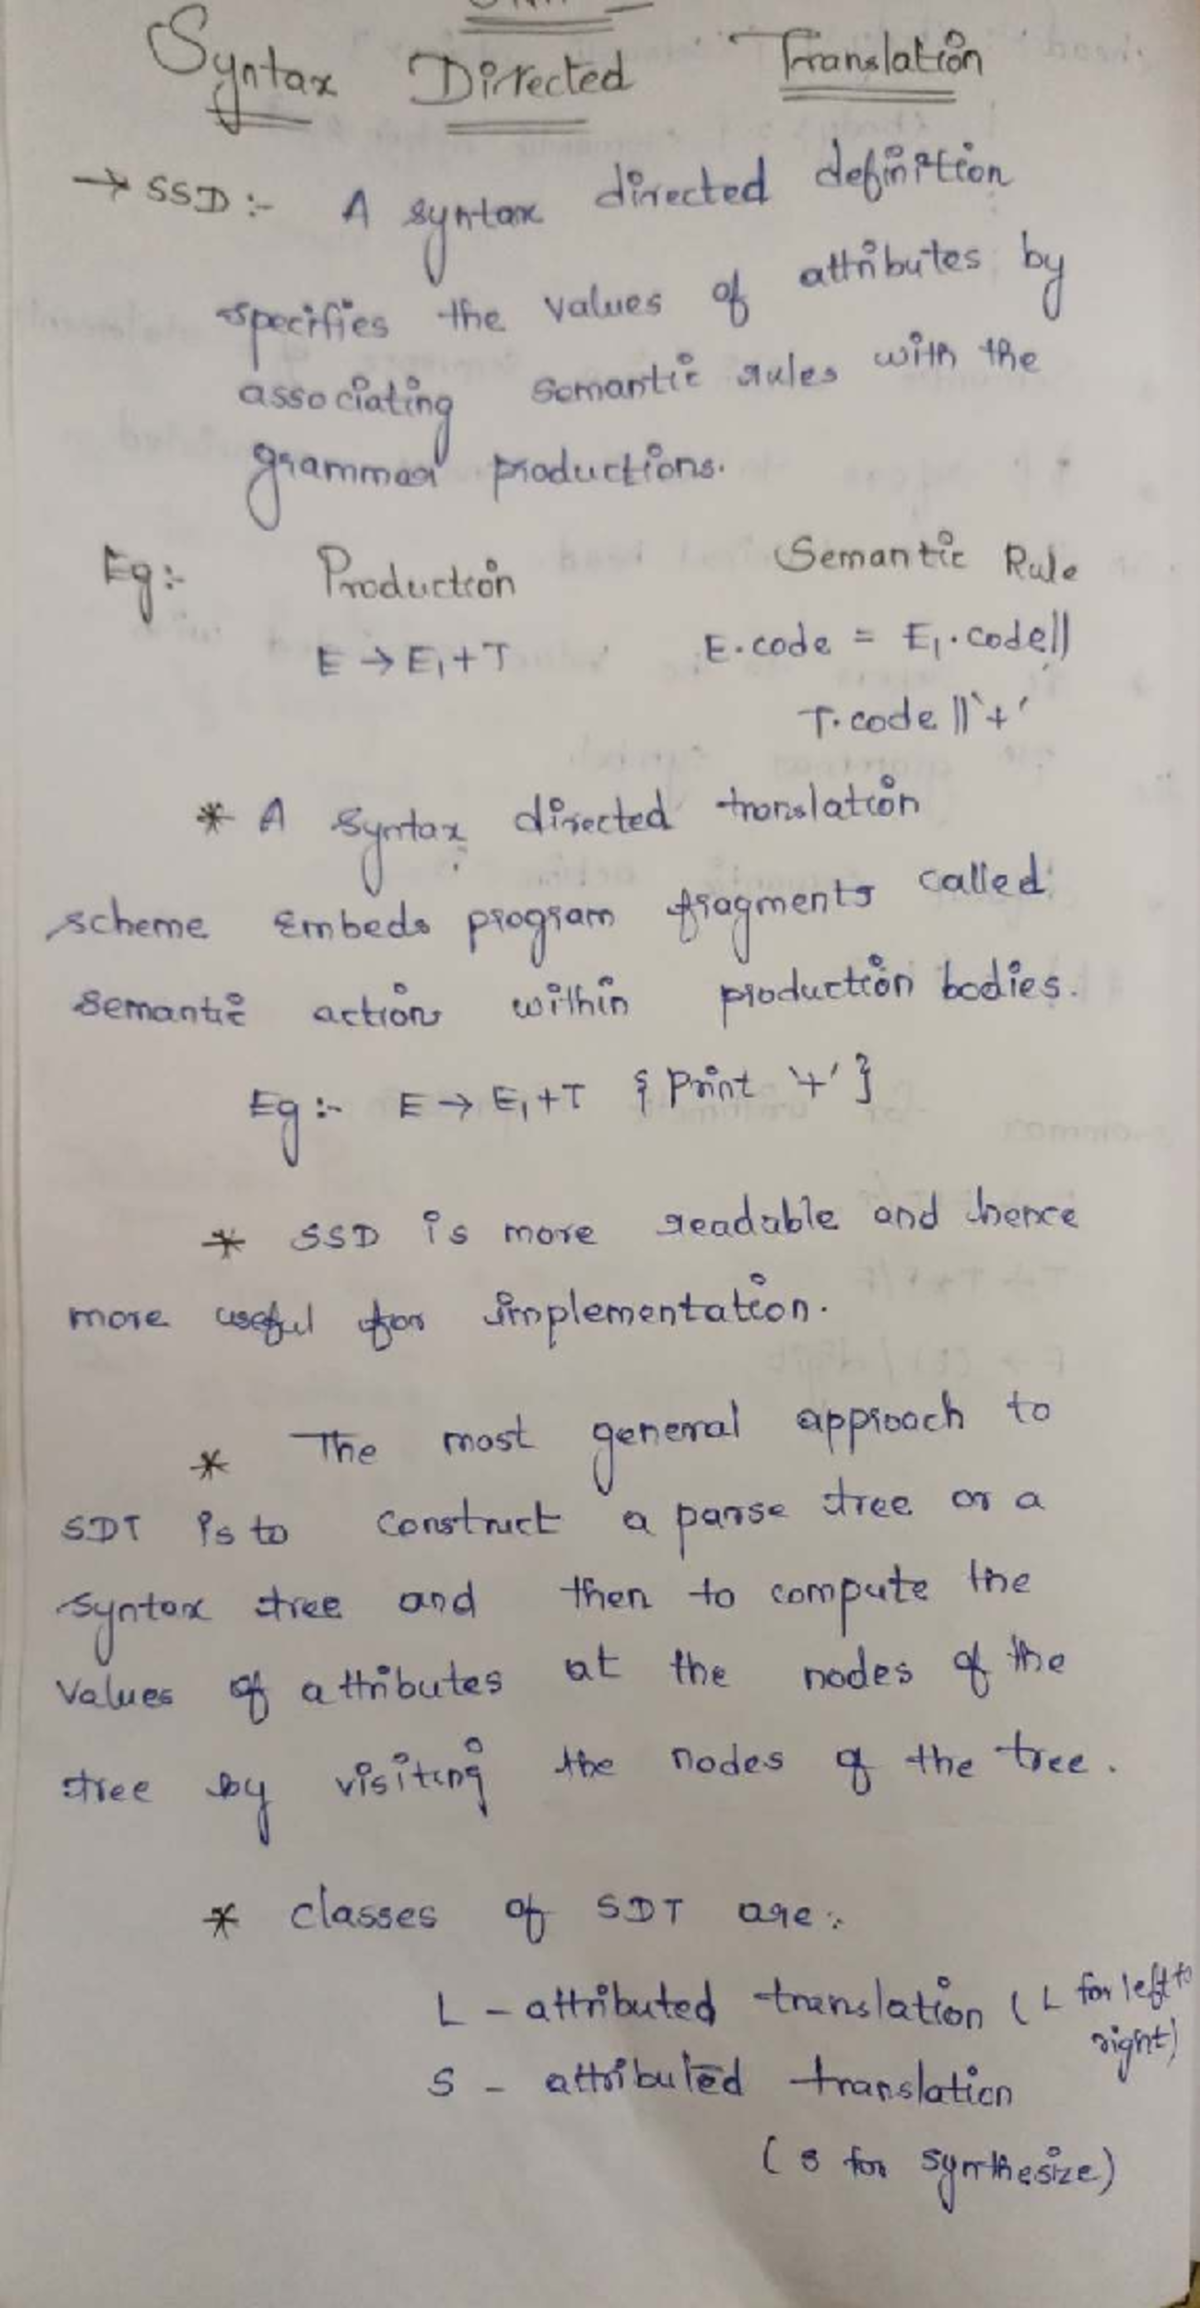 Syntax Directed Translation
→ SSD :- A syntax directed definition
specifies the values of attributes by
associating semantic rules with the
grammar productions.
Eg:- Production Semantic Rule
E → E₁ + T E.code = E₁.code||
T.code ||'+'
* A syntax directed translation
scheme Embeds program fragments called
semantic actions within production bodies.
Eg :- E → E₁ + T { Print '+' }
* SSD is more readable and hence
more useful for implementation.
* The most general approach to
SDT is to construct a parse tree or a
syntax tree and then to compute the
values of attributes at the nodes of the
tree by visiting the nodes of the tree.
* classes of SDT are:
L - attributed translation ( L for left to
right)
S - attributed translation
( s for synthesize)